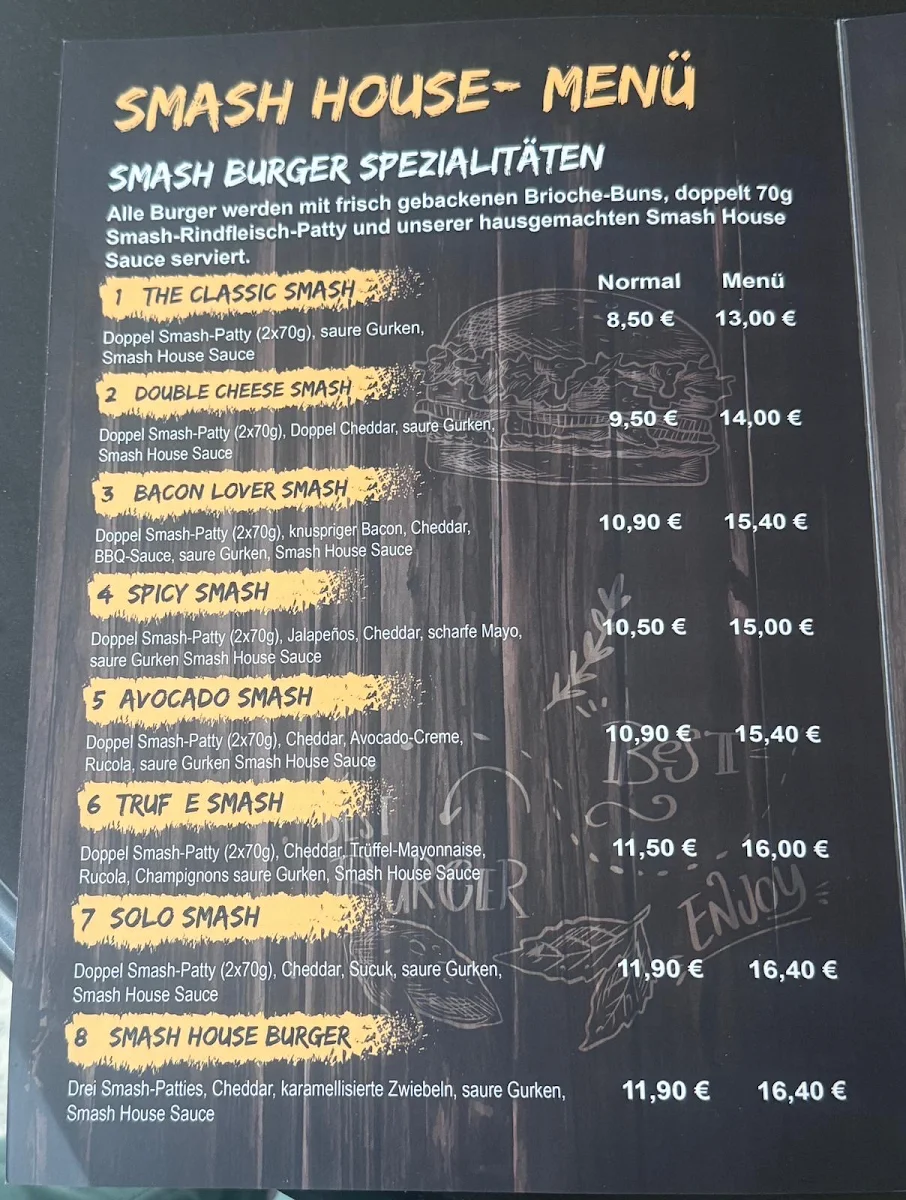 SMASH HOUSE- MENÜ
SMASH BURGER SPEZIALITÄTEN
Alle Burger werden mit frisch gebackenen Brioche-Buns, doppelt 70g
Smash-Rindfleisch-Patty und unserer hausgemachten Smash House
Sauce serviert.
Normal Menü
1 THE CLASSIC SMASH
8,50 € 13,00 €
Doppel Smash-Patty (2x70g), saure Gurken,
Smash House Sauce
2 DOUBLE CHEESE SMASH
9,50 € 14,00 €
Doppel Smash-Patty (2x70g), Doppel Cheddar, saure Gurken,
Smash House Sauce
3 BACON LOVER SMASH
10,90 € 15,40 €
Doppel Smash-Patty (2x70g), knuspriger Bacon, Cheddar,
BBQ-Sauce, saure Gurken, Smash House Sauce
4 SPICY SMASH
10,50 € 15,00 €
Doppel Smash-Patty (2x70g), Jalapeños, Cheddar, scharfe Mayo,
saure Gurken Smash House Sauce
5 AVOCADO SMASH
10,90 € 15,40 €
Doppel Smash-Patty (2x70g), Cheddar, Avocado-Creme,
Rucola, saure Gurken Smash House Sauce
BEST
6 TRUF E SMASH
BEST
11,50 € 16,00 €
Doppel Smash-Patty (2x70g), Cheddar, Trüffel-Mayonnaise,
Rucola, Champignons saure Gurken, Smash House Sauce
BURGER
ENJOY
7 SOLO SMASH
11,90 € 16,40 €
Doppel Smash-Patty (2x70g), Cheddar, Sucuk, saure Gurken,
Smash House Sauce
8 SMASH HOUSE BURGER
11,90 € 16,40 €
Drei Smash-Patties, Cheddar, karamellisierte Zwiebeln, saure Gurken,
Smash House Sauce